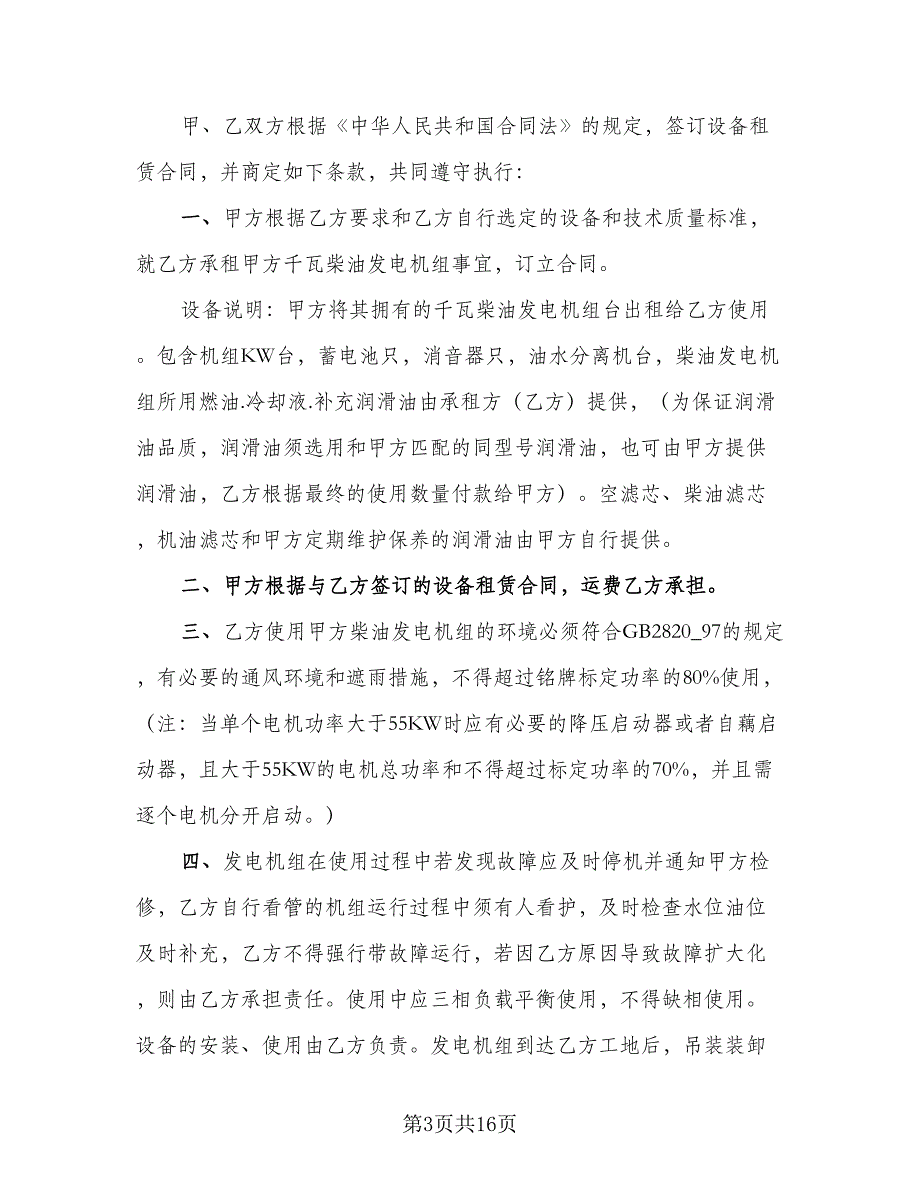 甲、乙双方根据《中华人民共和国合同法》的规定，签订设备租
赁合同，并商定如下条款，共同遵守执行：
一、甲方根据乙方要求和乙方自行选定的设备和技术质量标准，
就乙方承租甲方千瓦柴油发电机组事宜，订立合同。
设备说明：甲方将其拥有的千瓦柴油发电机组台出租给乙方使用
。包含机组KW台，蓄电池只，消音器只，油水分离机台，柴油发电机
组所用燃油.冷却液.补充润滑油由承租方（乙方）提供，（为保证润滑
油品质，润滑油须选用和甲方匹配的同型号润滑油，也可由甲方提供
润滑油，乙方根据最终的使用数量付款给甲方）。空滤芯、柴油滤芯
，机油滤芯和甲方定期维护保养的润滑油由甲方自行提供。
二、甲方根据与乙方签订的设备租赁合同，运费乙方承担。
三、乙方使用甲方柴油发电机组的环境必须符合GB2820_97的规定
，有必要的通风环境和遮雨措施，不得超过铭牌标定功率的80%使用，
（注：当单个电机功率大于55KW时应有必要的降压启动器或者自藕启
动器，且大于55KW的电机总功率和不得超过标定功率的70%，并且需
逐个电机分开启动。）
四、发电机组在使用过程中若发现故障应及时停机并通知甲方检
修，乙方自行看管的机组运行过程中须有人看护，及时检查水位油位
及时补充，乙方不得强行带故障运行，若因乙方原因导致故障扩大化
，则由乙方承担责任。使用中应三相负载平衡使用，不得缺相使用。
设备的安装、使用由乙方负责。发电机组到达乙方工地后，吊装装卸
第3页共16页